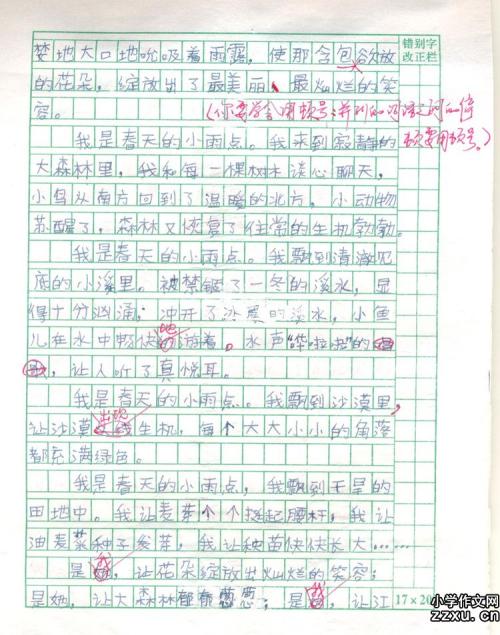 婪地大口地吮吸着雨露，使那含包欲放
错别字
改正栏
的花朵，绽放出了最美丽、最灿烂的笑
容。
(你要学会用顿号：并列的词语之间的停
顿要用顿号。)
我是春天的小雨点。我来到寂静的
大森林里，我和每一棵树木谈心聊天，
小鸟从南方回到了温暖的北方，小动物
苏醒了，森林又恢复了往常的生机勃勃。
我是春天的小雨点。我飘到清澈见
底的小溪里。被禁锢了一冬的溪水，显
得十分汹涌，冲开了冰冻的溪水，小鱼
儿在水中畅快地游着。水声“哗啦啦”的
，让人听了真悦耳。
我是春天的小雨点。我飘到沙漠里，
出现
让沙漠一线生机，每个大大小小的角落
都充满绿色。
我是春天的小雨点，我飘到干旱的
田地中。我让麦芽个个挺起腰杆，我让
油麦菜种子发芽，我让秧苗快快长大……
是她，让花朵绽放出灿烂的笑容；
是她，让大森林郁郁葱葱；是，让江
17×20
小学作文网
zzxu.cn